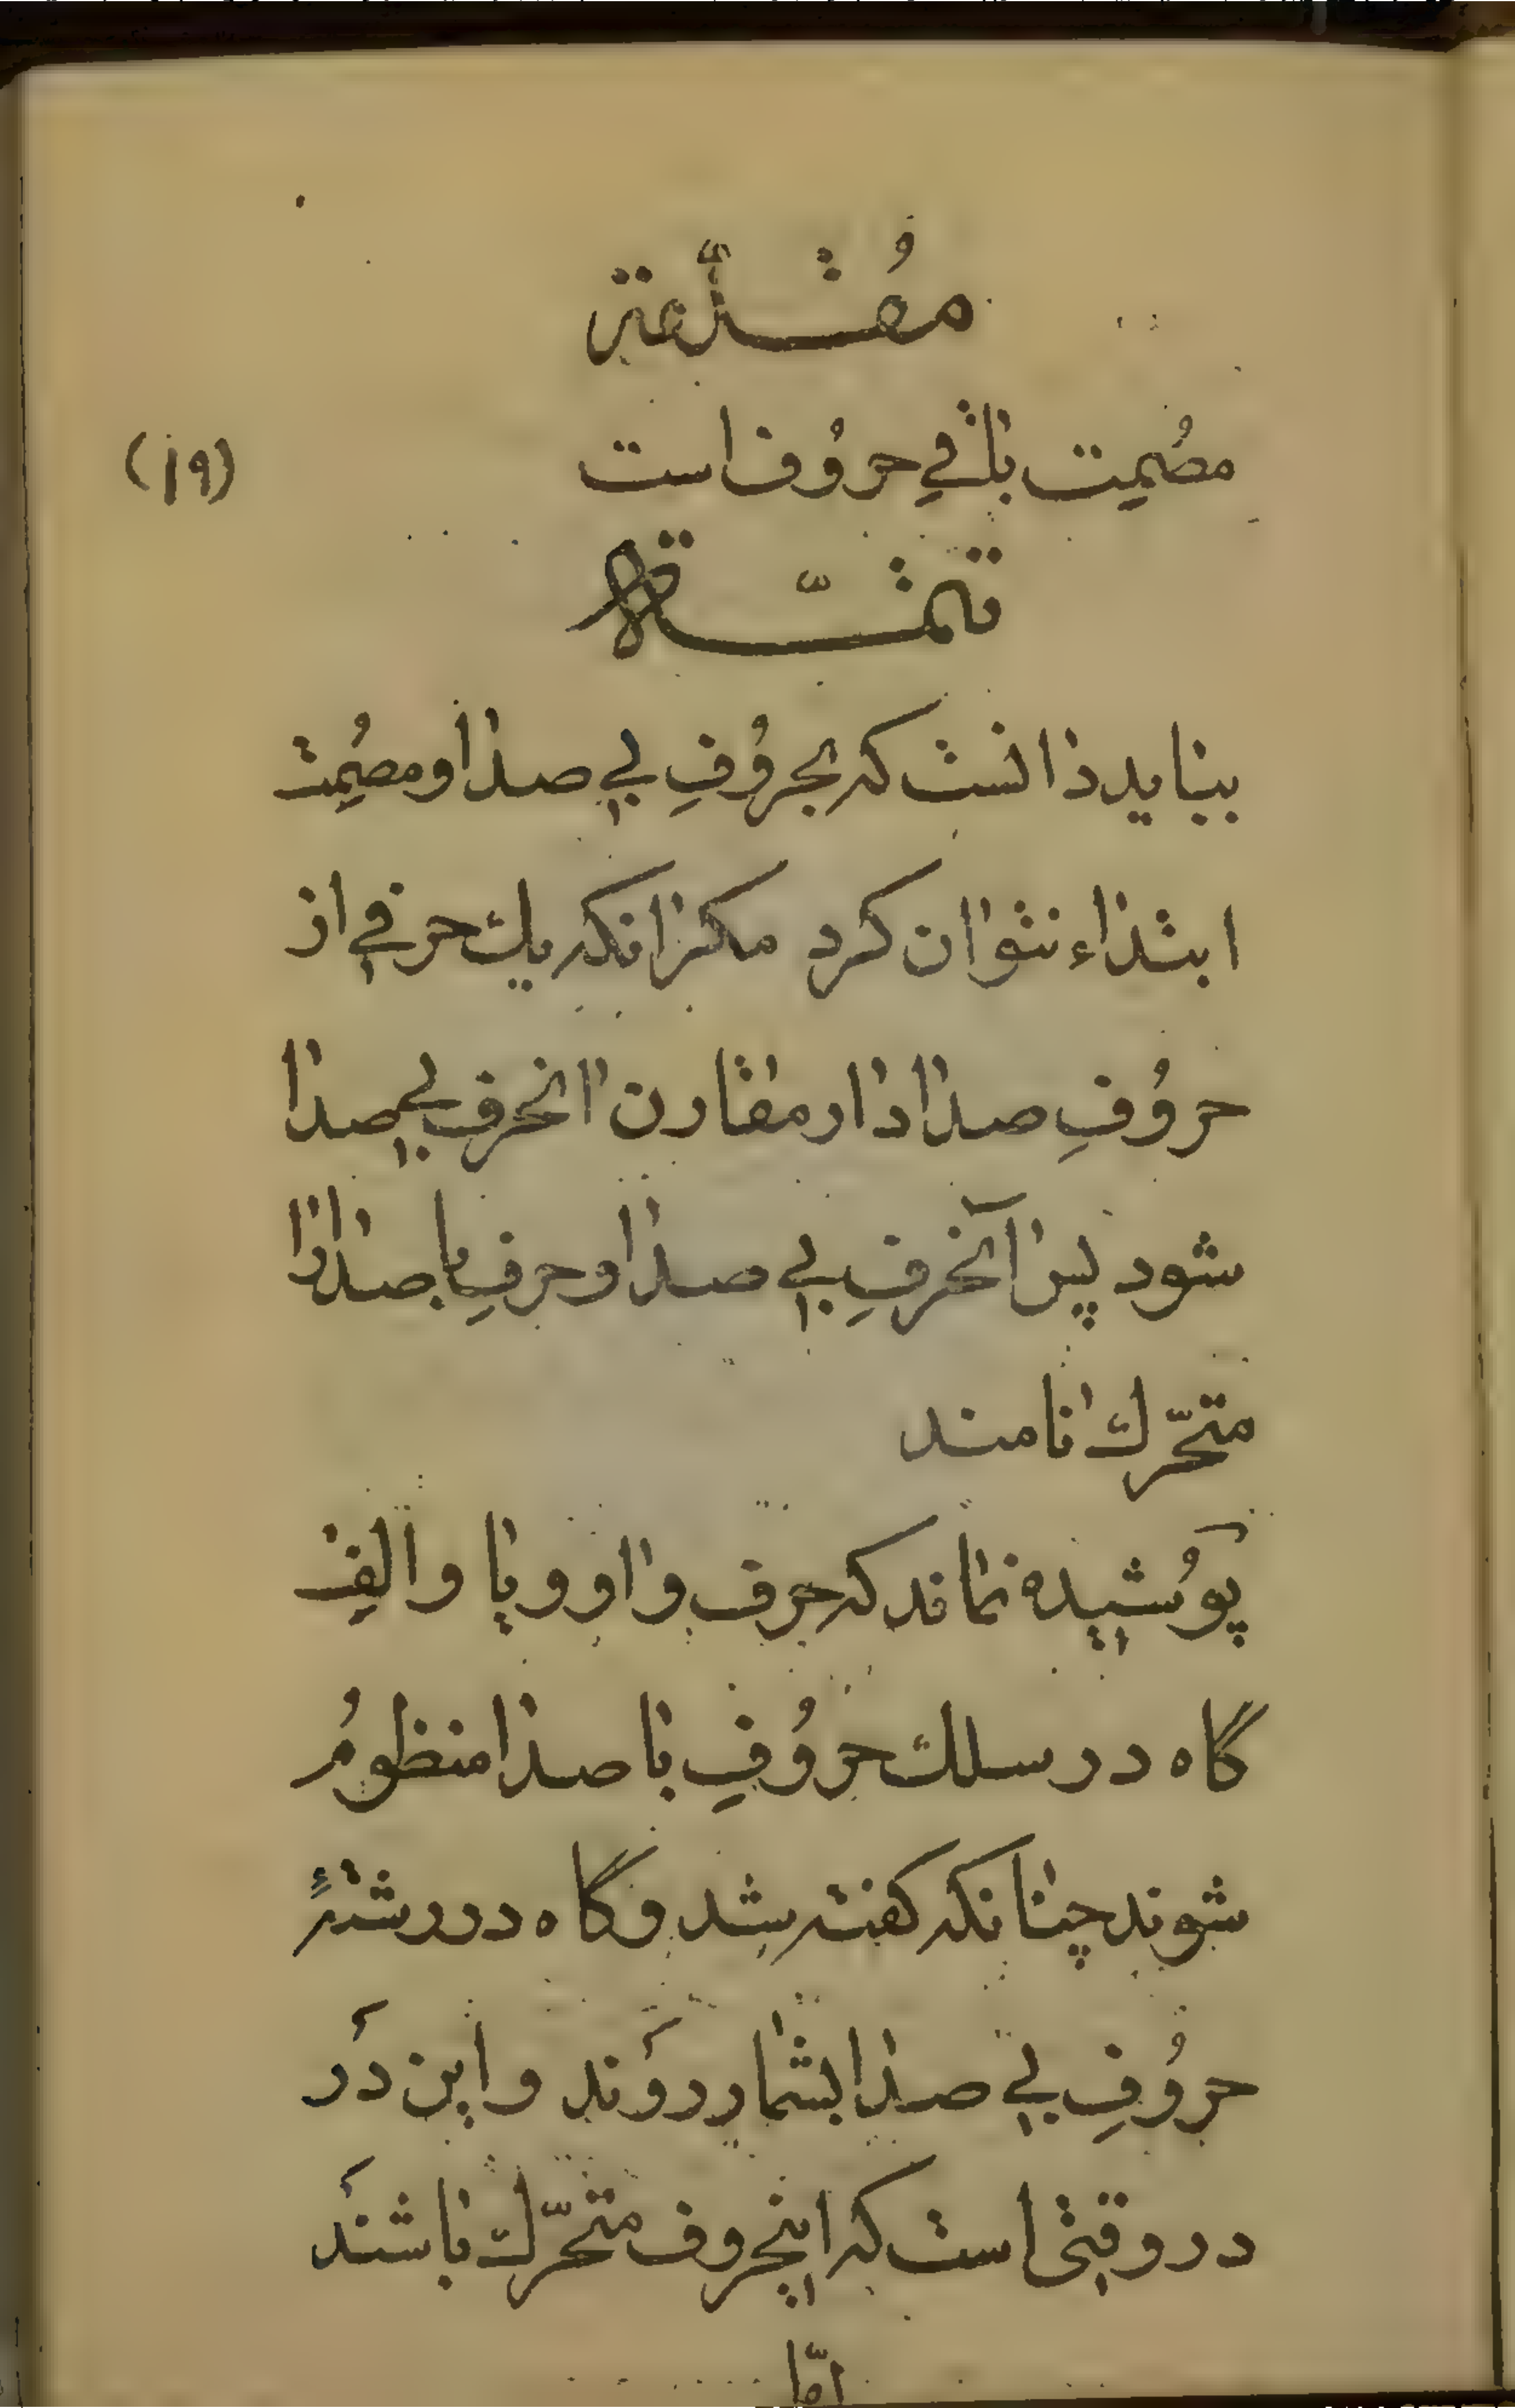 مُقدّمة
مصُمِت باقي حروُف است
(١٩)
تتمّة
ببايد دانست كه بحروُفِ بي صدا و مصُمِت
ابتداء نتوان كرد مكر انكه يك حرفي از
حروُفِ صدادار مقارن انحرفِ بي صدا
شود پس آنحرفِ بي صدا و حرفِ با صدا را
متحّرك نامند
پوُشيده نماند كه حرف واو و يا و الفِ
گاه در سلك حروُفِ با صدا منظوُم
شوند چنانكه كفته شد و گاه در رشتهٔ
حروُفِ بي صدا بشمار رَوَند و اين دَر
در وقتى است كه اينحروف متحّرك باشَند
امّا